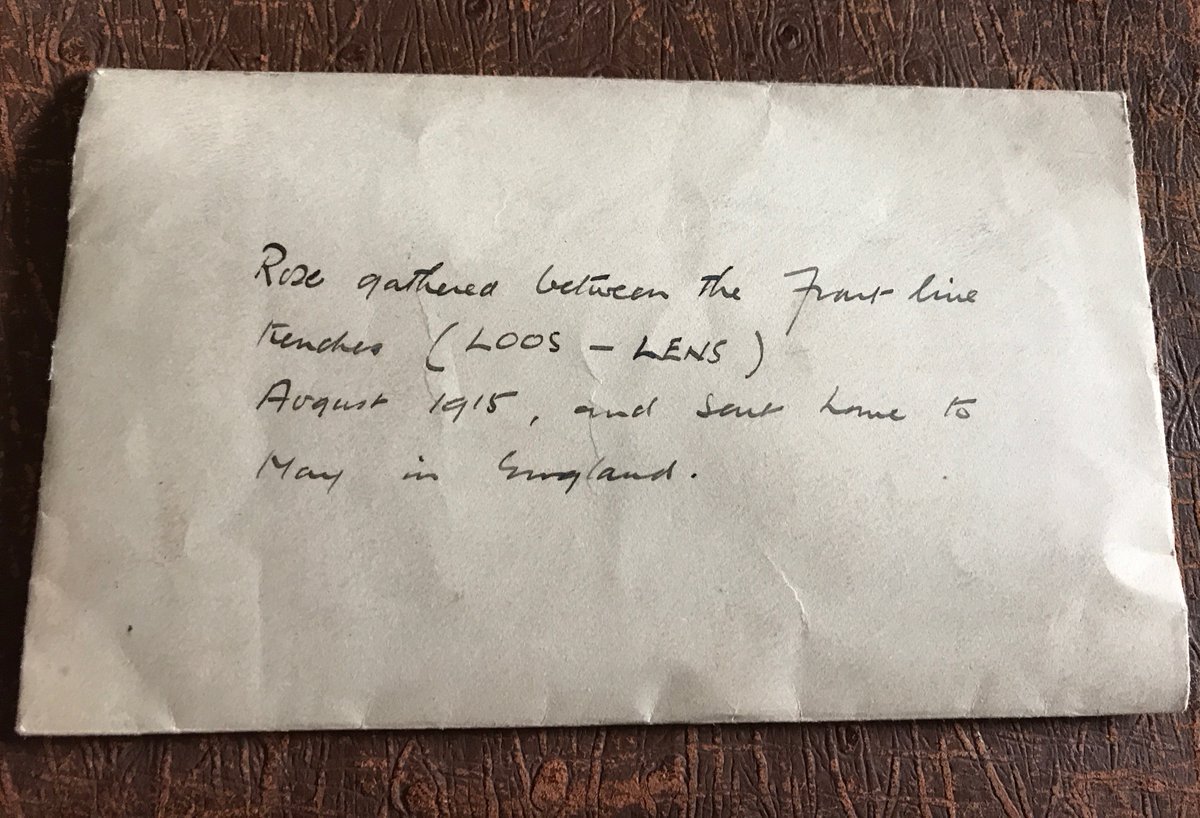 Rose gathered between the Front line
trenches (LOOS - LENS)
August 1915, and sent home to
May in England.